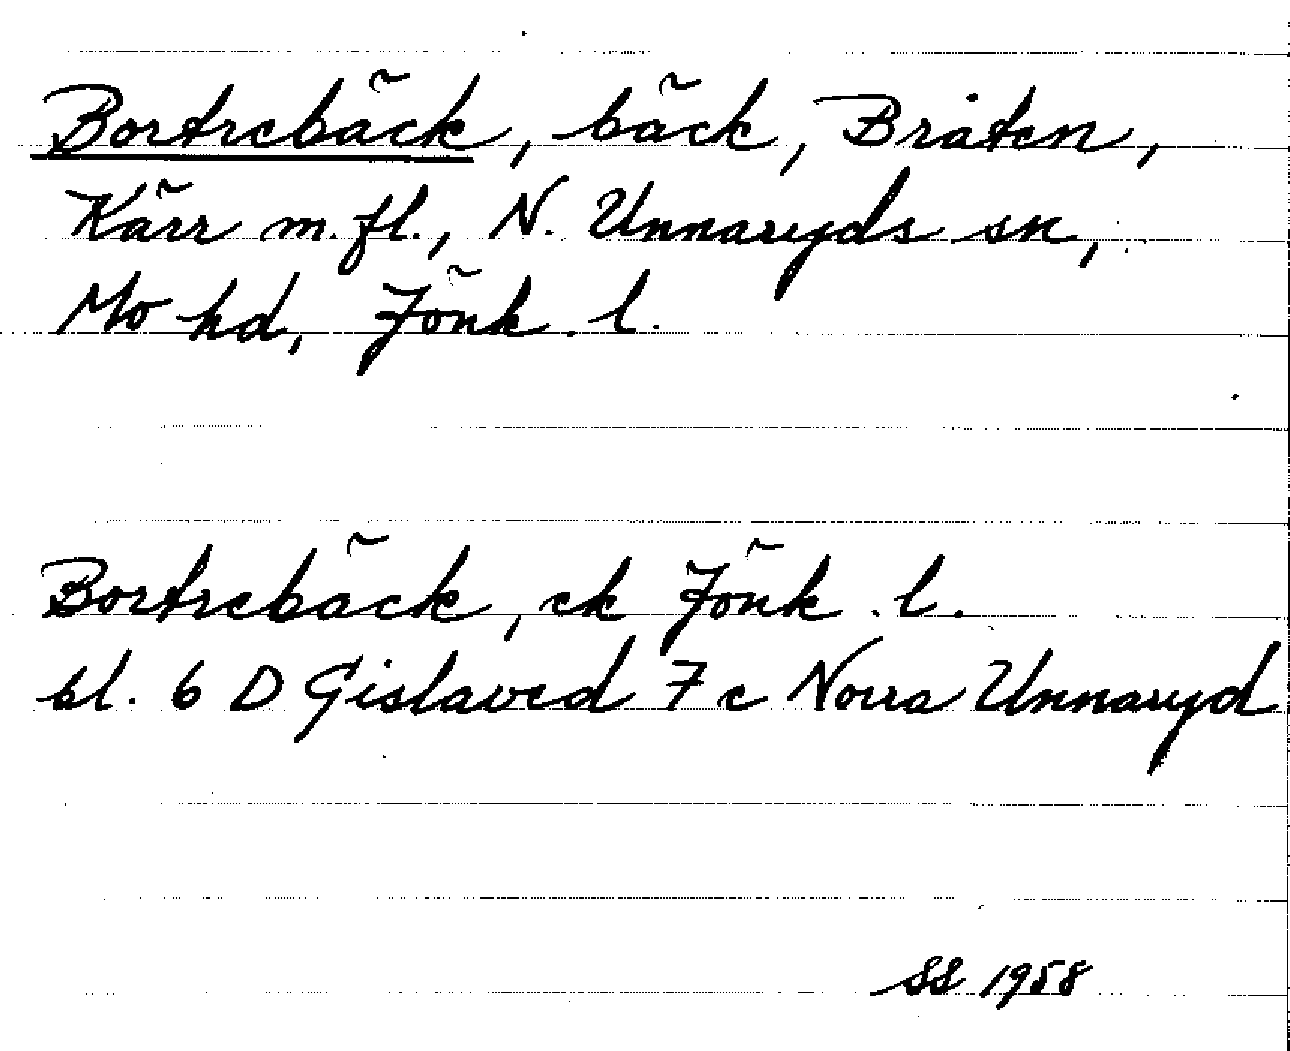 Bortrebäck, bäck, Bråten,
Kärr m.fl., N. Unnaryds sn,
Mo hd, Jönk. l.
Bortrebäck, ek Jönk. l.
bl. 6 D Gislaved 7 c Norra Unnaryd
SS 1958